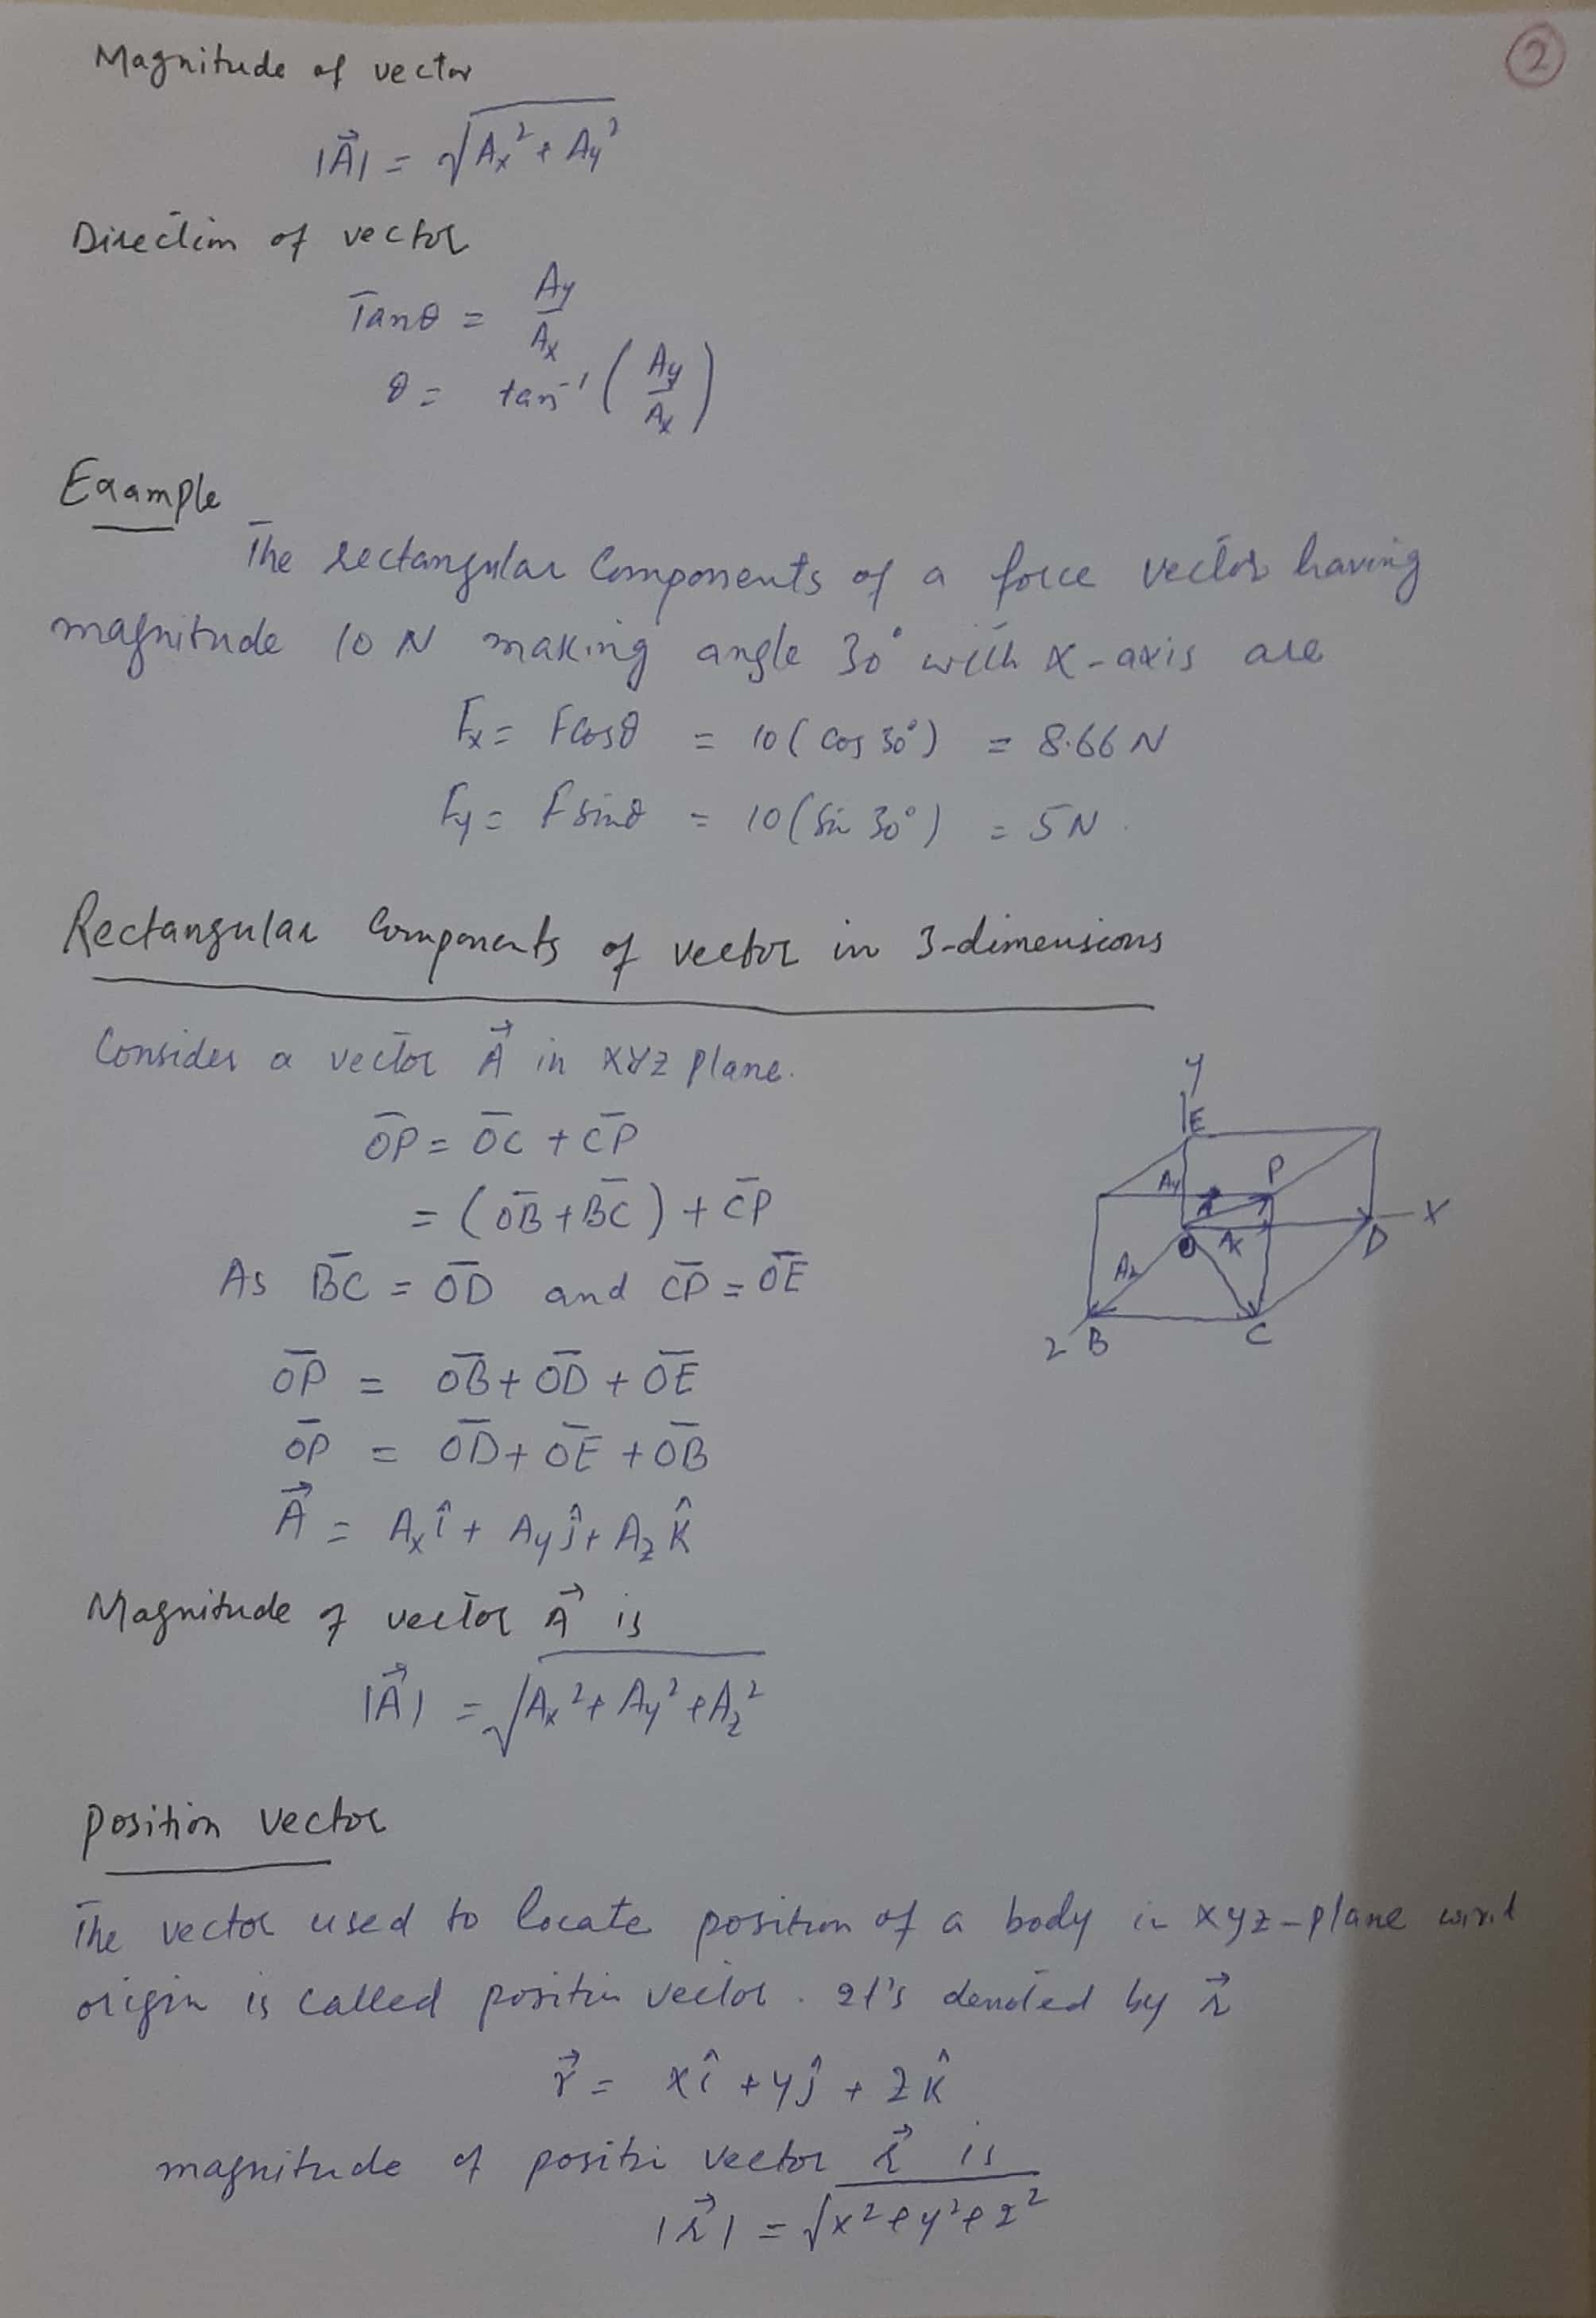 2
Magnitude of vector
|A⃗| = √(Ax² + Ay²)
Direction of vector
Tanθ = Ay/Ax
θ = tan⁻¹(Ay/Ax)
Example
The rectangular Components of a force vector having
magnitude 10 N making angle 30° with x-axis are
Fx = Fcosθ = 10(cos 30°) = 8.66 N
Fy = Fsinθ = 10(Sin 30°) = 5N.
Rectangular Components of vector in 3-dimensions
Consider a vector A⃗ in XYZ plane.
O̅P̅ = O̅C̅ + C̅P̅
= (O̅B̅ + B̅C̅) + C̅P̅
As B̅C̅ = O̅D̅ and C̅P̅ = O̅E̅
O̅P̅ = O̅B̅ + O̅D̅ + O̅E̅
O̅P̅ = O̅D̅ + O̅E̅ + O̅B̅
A⃗ = Ax î + Ay ĵ + Az k̂
y
E
P
Ay
A⃗
X
O
Ax
D
Az
Z B
C
Magnitude of vector A⃗ is
|A⃗| = √(Ax² + Ay² + Az²)
Position Vector
The vector used to locate position of a body in xyz-plane w.r.t
origin is called position vector. It's denoted by r⃗
r⃗ = xî + yĵ + zk̂
magnitude of positi vector r⃗ is
|r⃗| = √(x² + y² + z²)